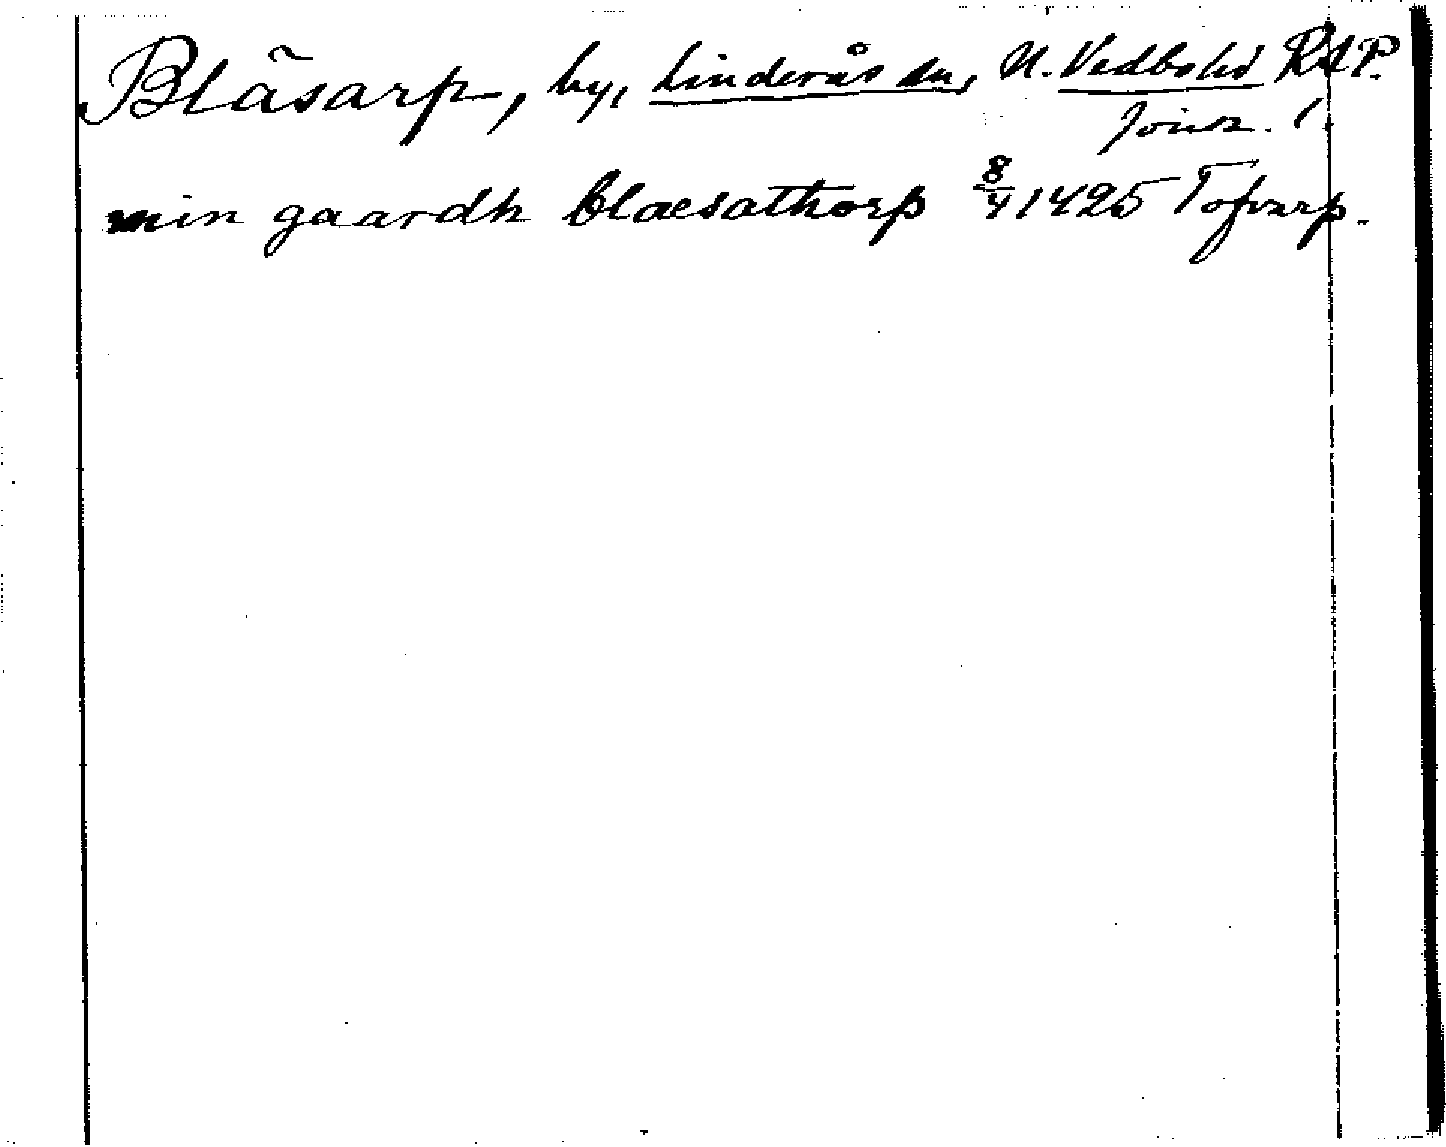 Bläsarp, by, Linderås sn, N. Vedbohd RAP.
Jönk. l.
min gaardh blaesathorp 8/4 1425 Tofvarp.